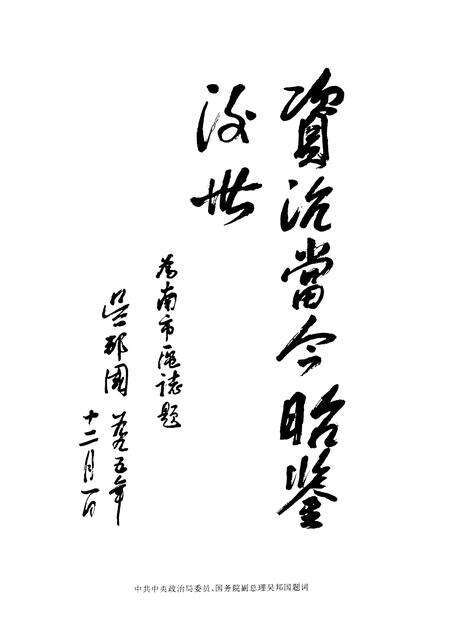 資治當今昭鉴
後世
為南市區誌題
吴邦國
一九九五年
十二月一日
中共中央政治局委员、国务院副总理吴邦国题词